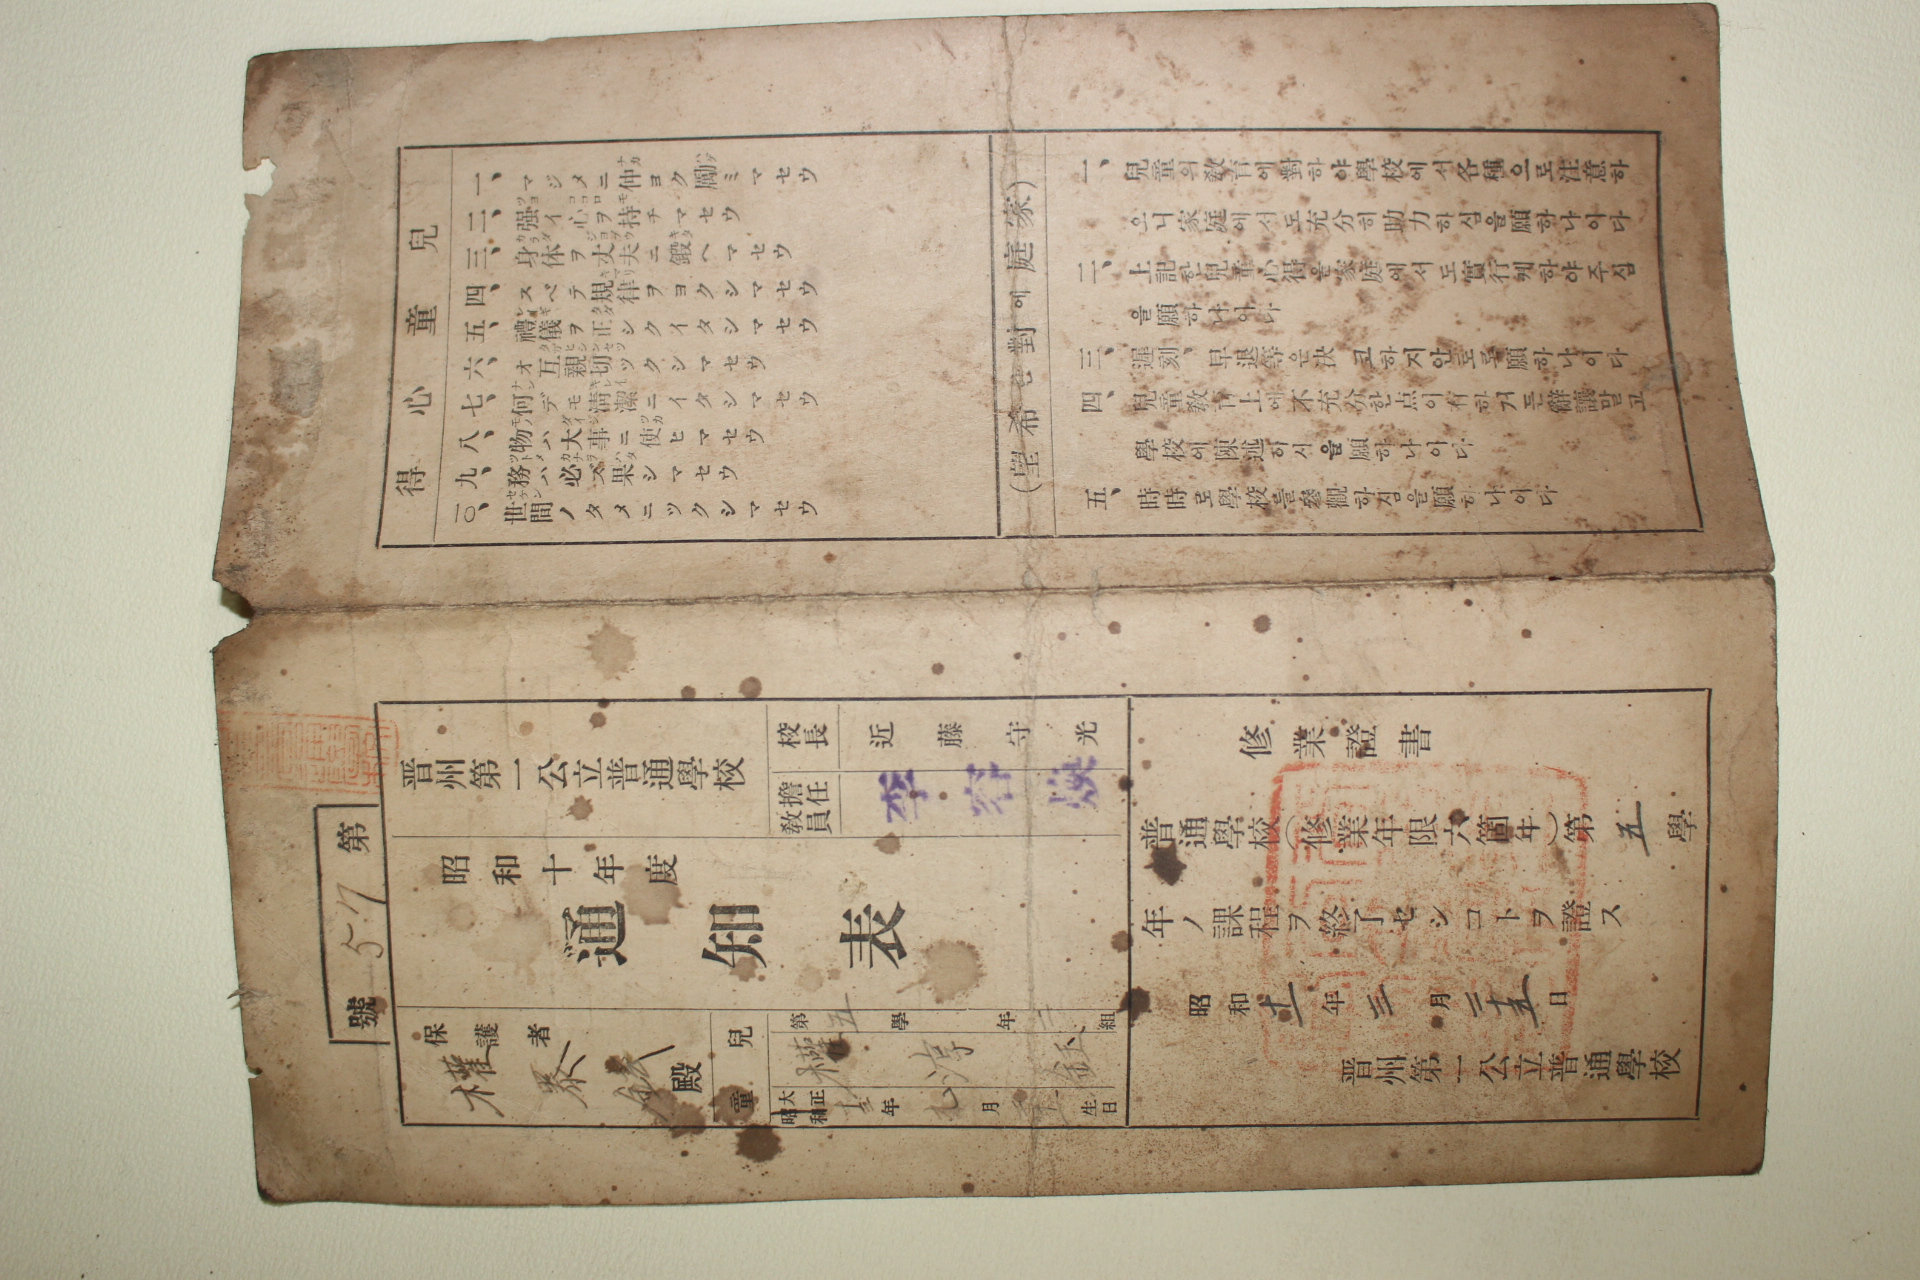 兒童心得
一、マジメニ仲ヨク勵ミマセウ
二、强イ心ヲ持チマセウ
三、身体ヲ丈夫ニ鍛ヘマセウ
四、スベテ規律ヲヨクシマセウ
五、禮儀ヲ正シクイタシマセウ
六、オ互親切ツクシマセウ
七、何デモ淸潔ニイタシマセウ
八、物ハ大事ニ使ヒマセウ
九、務ハ必ズ果シマセウ
一〇、世間ノタメニツクシマセウ
(家庭에對한希望)
一、兒童의敎育에對하야學校에서各種으로注意하
오니家庭에서도充分히助力하심을願하나이다
二、上記한兒童心得을家庭에서도實行케하야주심
을願하나이다
三、遲刻、早退等은決코하지안토록願하나이다
四、兒童敎育上에不充分한点이有하거든辭讓말고
學校에陳述하시을願하나이다
五、時時로學校를參觀하심을願하나이다
第57號
晋州第一公立普通學校
校長 近藤守光
擔任敎員 李容煥
昭和十年度
通知表
保護者
權泰 殿
兒童
第五學年二組
權淳鈺
大正
昭和
十三年九月 日生
修業證書
普通學校(修業年限六箇年)第五學
年ノ課程ヲ終了セシコトヲ證ス
昭和十一年三月二十五日
晋州第一公立普通學校